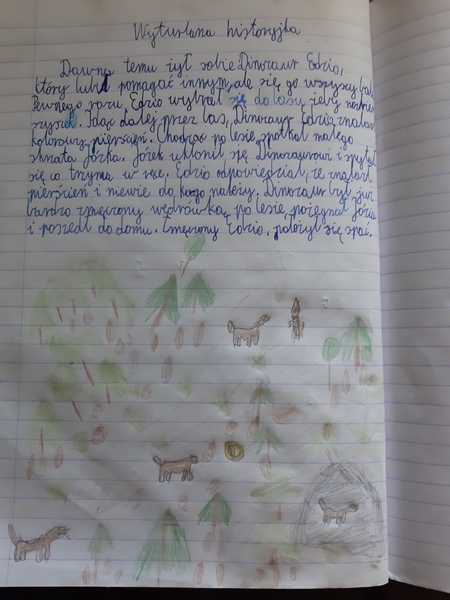 Wyturlana historyjka
Dawno temu żył sobie Dinozaur Edzio,
który lubił pomagać innym, ale się go wszyscy bali.
Pewnego razu, Edzio wybrał się do lasu żeby nazbierać
szyszek. Idąc dalej przez las, Dinozaur Edzio znalazł
kolorowy pierścień. Chodząc po lesie spotkał małego
skrzata Józka. Józek ukłonił się Dinozaurowi i spytał
się co trzyma w ręce. Edzio odpowiedział, że znalazł
pierścień i niewie do kogo należy. Dinozaur był już
bardzo zmęczony wędrówką po lesie, pożegnał Józka
i poszedł do domu. Zmęczony Edzio, położył się spać.